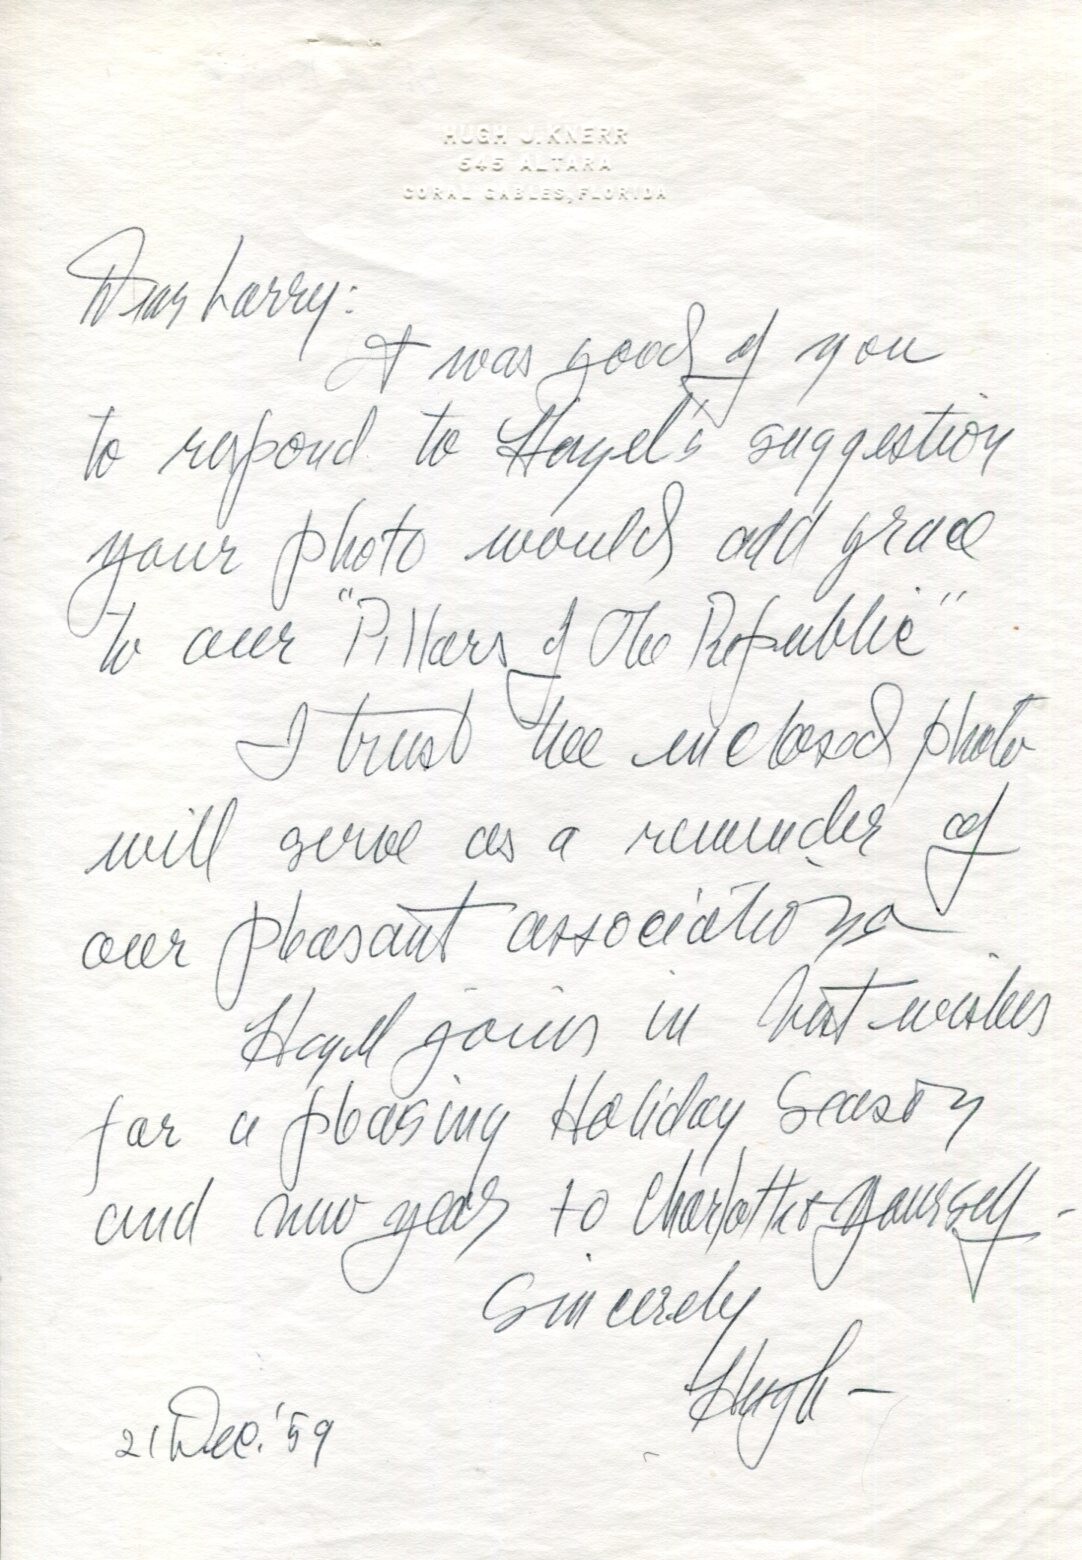 HUGH J. KNERR
545 ALTARA
CORAL GABLES, FLORIDA
Dear Larry:
It was good of you
to respond to Hazel's suggestion
your photo would add grace
to our "Pillars of The Republic"
I trust the enclosed photo
will serve as a reminder of
our pleasant association
Hazel joins in best wishes
for a pleasing Holiday Season
and new year to Charlotte & yourself -
Sincerely
Hugh -
21 Dec. '59